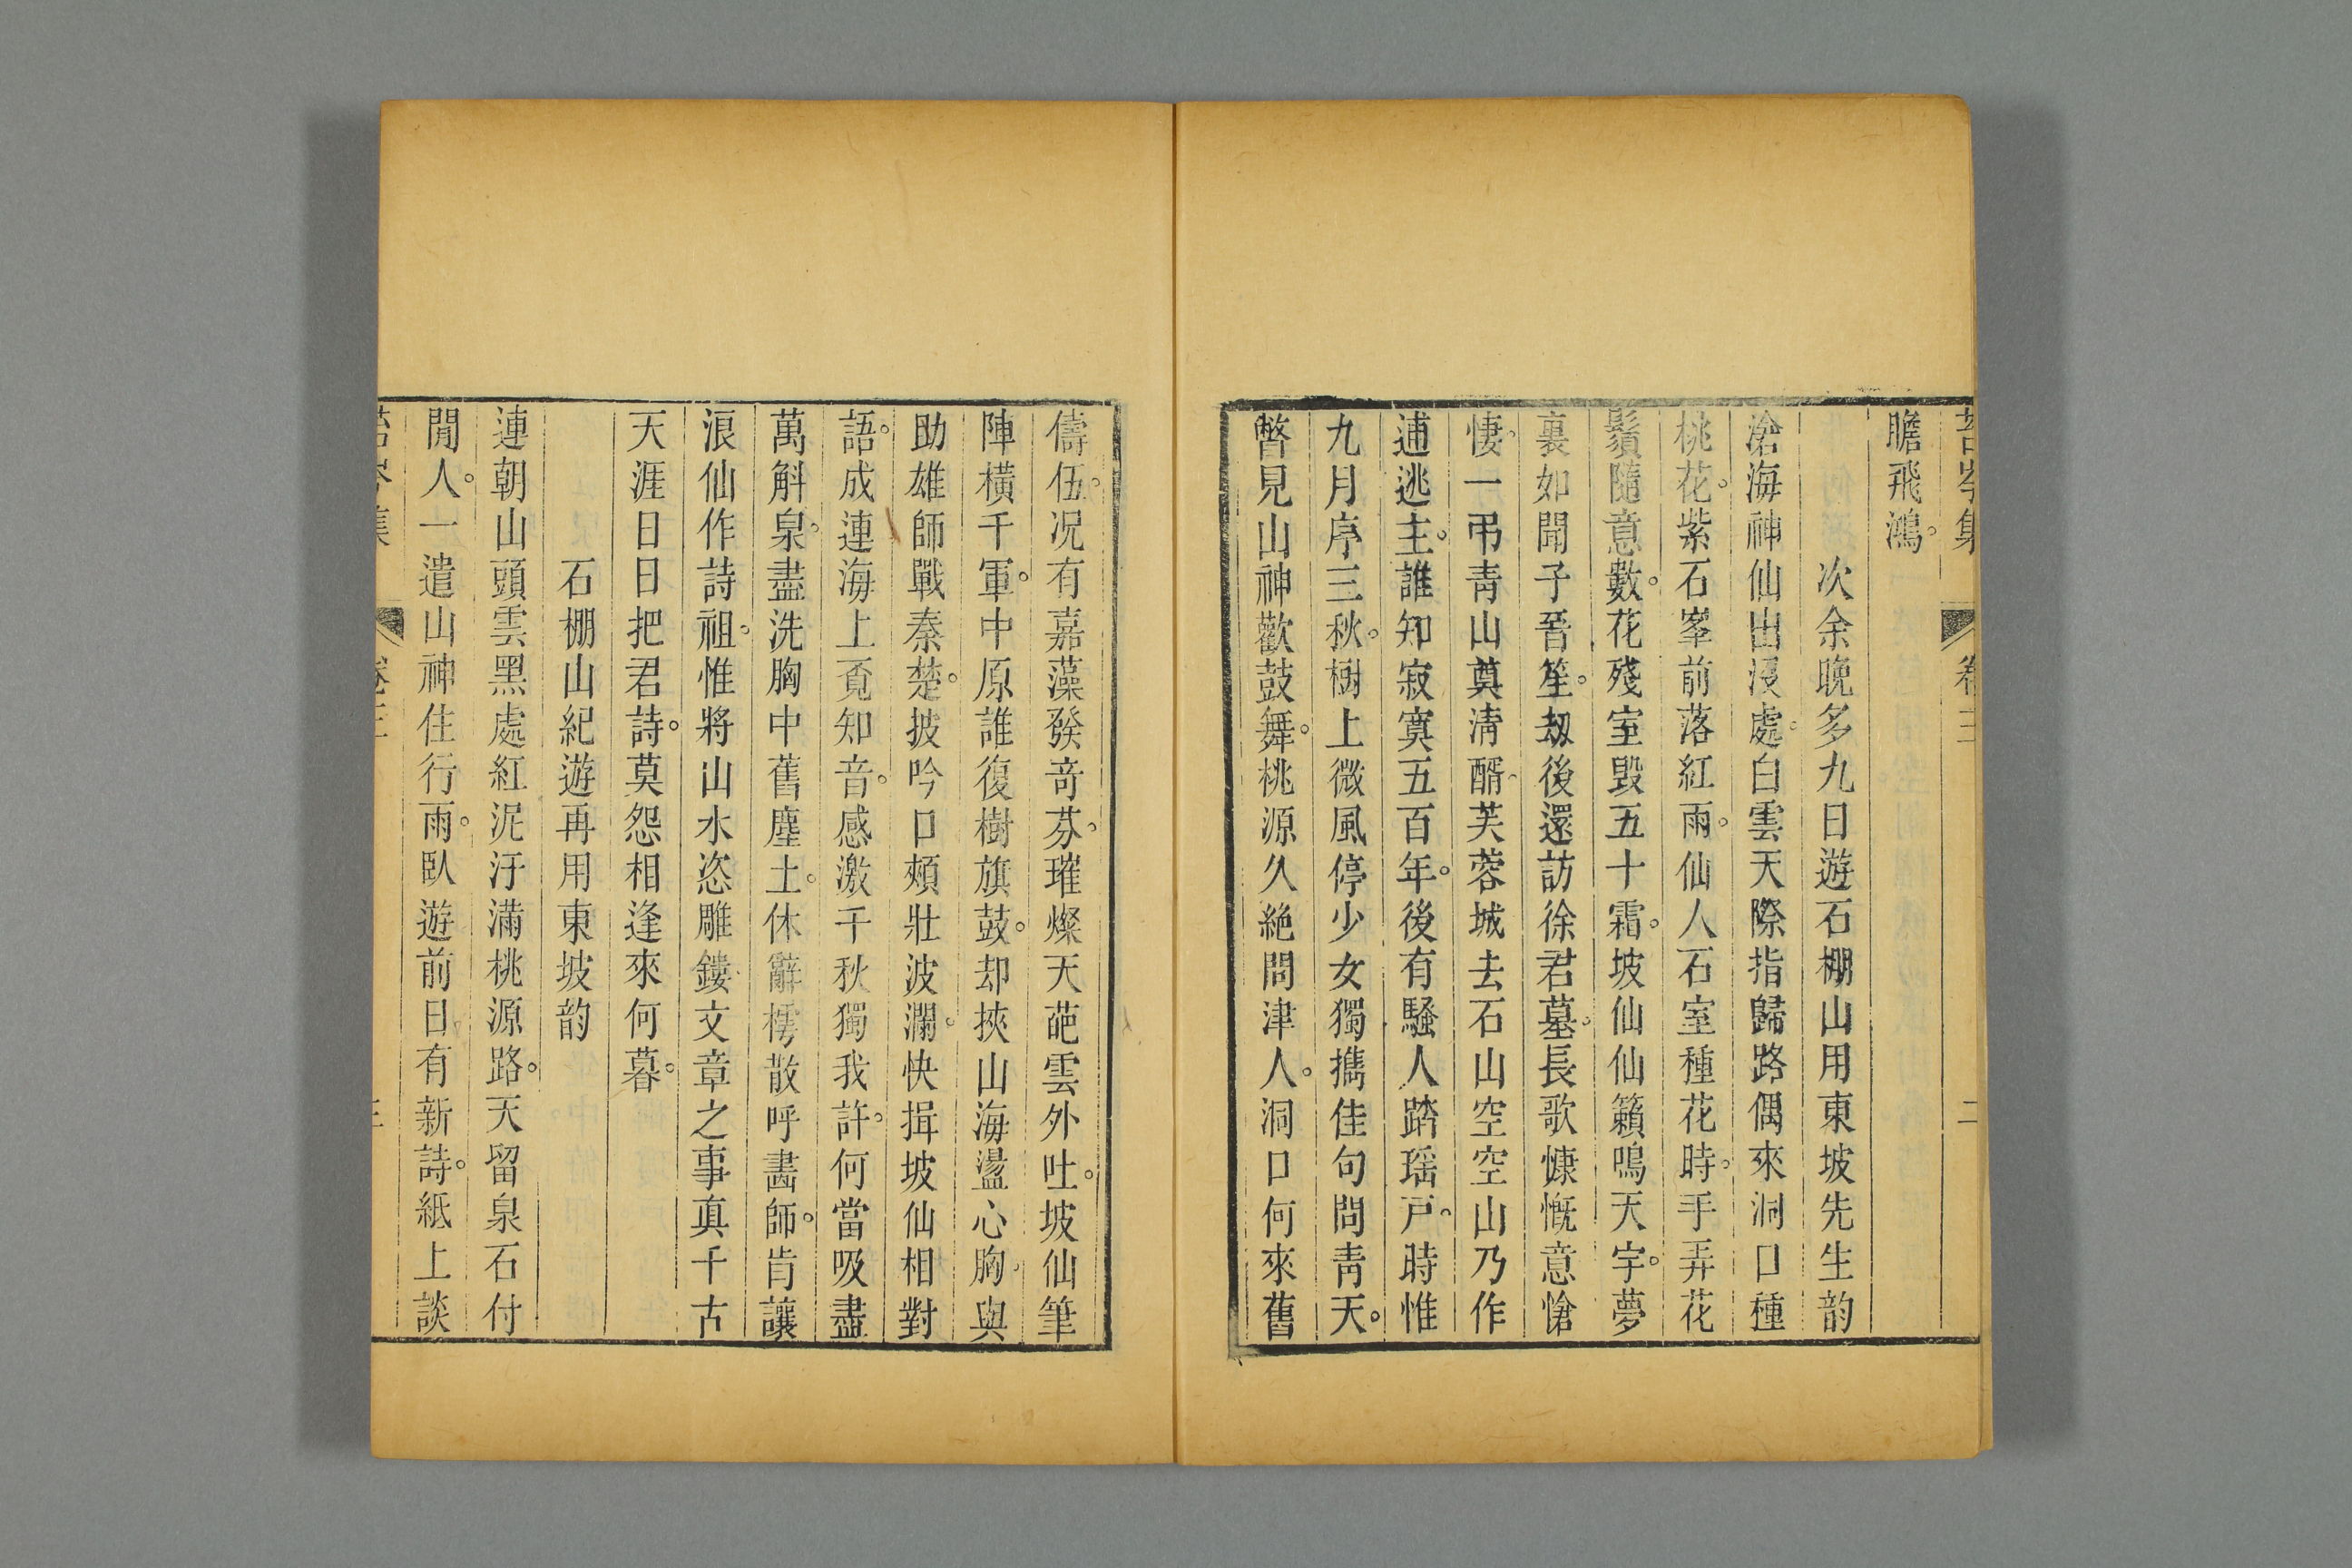 苔岑集 卷三 二
瞻飛鴻。
次余晚多九日遊石棚山用東坡先生韵
滄海神仙出沒處。白雲天際指歸路偶來洞口種
桃花。紫石峯前落紅雨。仙人石室種花時。手弄花
鬚隨意數。花殘室毀五十霜。坡仙仙籟鳴天宇。夢
裏如聞子晉笙。劫後還訪徐君墓。長歌慷慨意愴
悽。一弔青山奠清醑。芙蓉城去石山空空山乃作
逋逃主。誰知寂寞五百年。後有騷人踏瑶戸。時惟
九月序三秋。樹上微風停少女獨携佳句問青天。
瞥見山神歡鼓舞。桃源久絶問津人。洞口何來舊
儔伍。況有嘉藻發奇芬。璀燦天葩雲外吐。坡仙筆
陣橫千軍。中原誰復樹旗鼓。却挾山海盪心胸。與
助雄師戰秦楚。披吟口頰壯波瀾。快揖坡仙相對
語。成連海上覓知音。感激千秋獨我許。何當吸盡
萬斛泉。盡洗胸中舊塵土。休辭樗散呼畵師。肯讓
浪仙作詩祖。惟將山水恣雕鏤文章之事眞千古
天涯日日把君詩。莫怨相逢來何暮。
石棚山紀遊再用東坡韵
連朝山頭雲黑處紅泥汙滿桃源路。天留泉石付
閒人。一遣山神住行雨。臥遊前日有新詩。紙上談
苔岑集 卷三 三